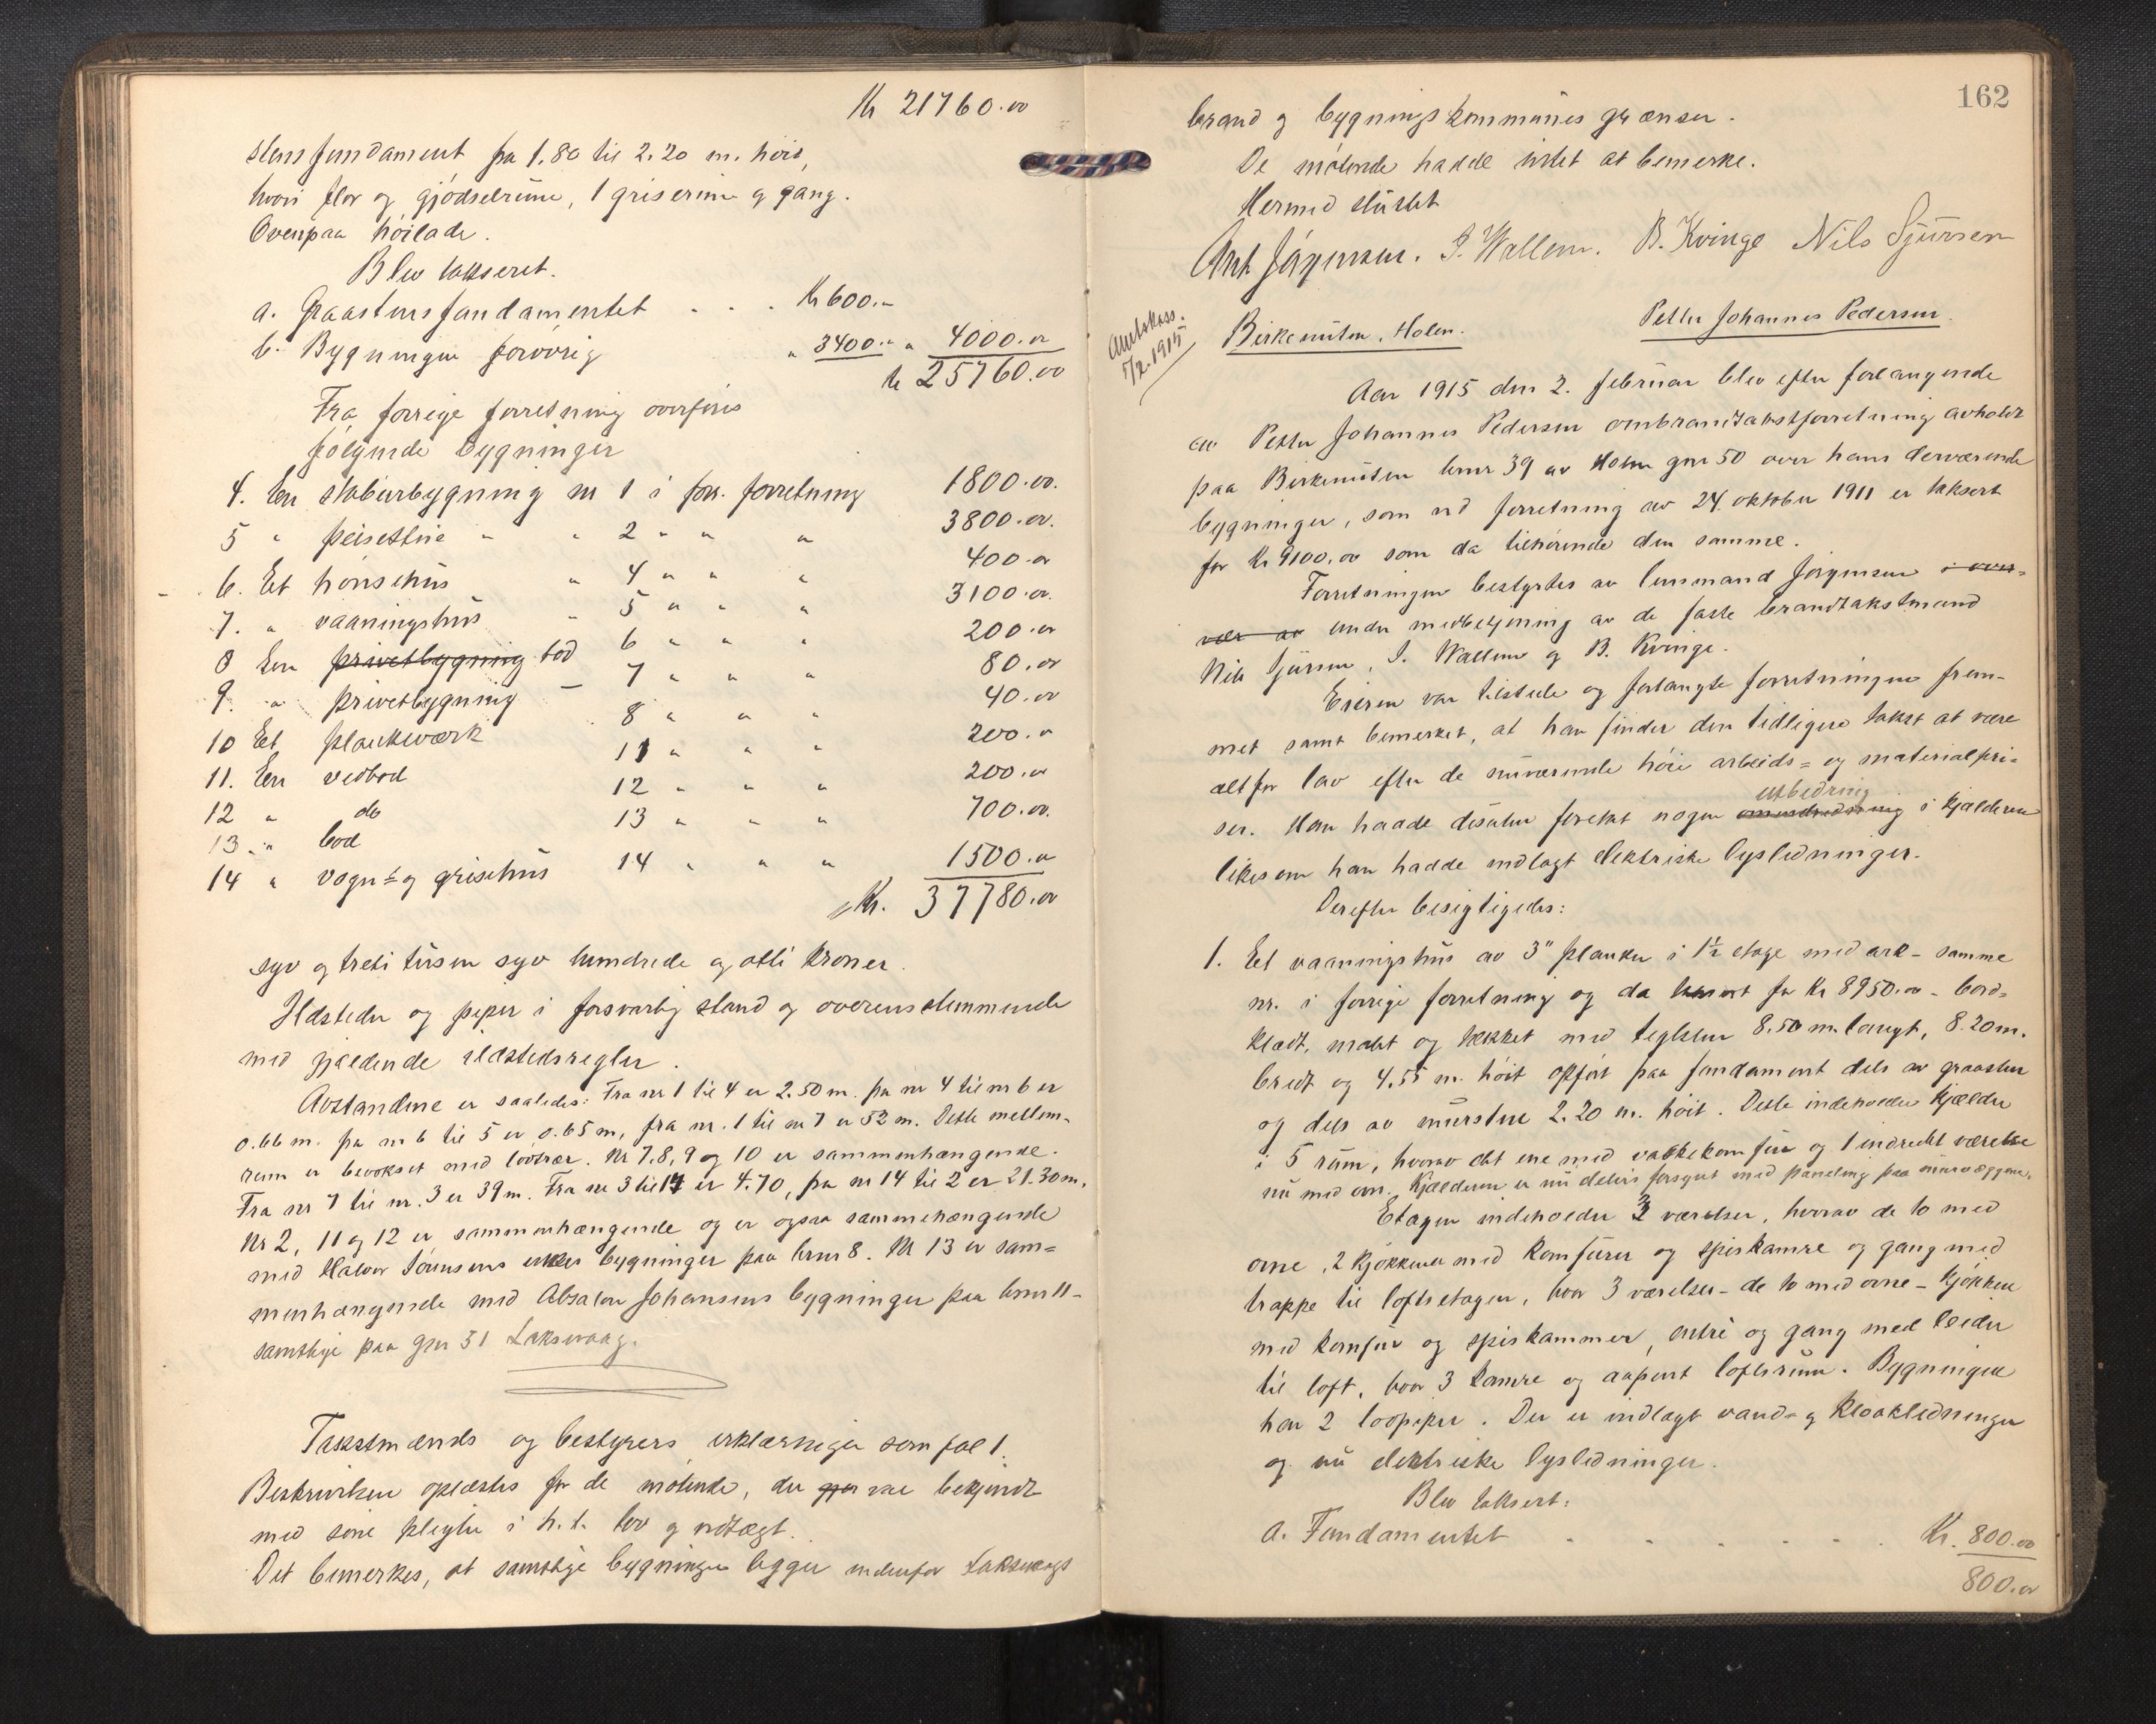 Kr 21760.00
stensfundament fra 1.80 til 2.20 m. høit,
hvori flor og gjødselrum, 1 griserum og gang.
Ovenpaa høilade.
Blev takseret.
a. Graastensfundamentet . . . Kr 600.-
b. Bygningen forøvrig " 3400.- " 4000.00
kr 25760.00
Fra forrige forretning overføres
følgende bygninger
4. En stabursbygning nr 1 i forr. forretning 1800.00.
5 " peisestue " " 2 " " " 3800.00.
6. Et hønsehus " 4 " " " 400.00
7. " vaaningshus " 5 " " " 3100.00.
8 En privetbygning bod 6 " " " 200.00
9. " privetbygning – 7 " " " 80.00
10 Et plankeværk 8 " " " 40.00
11. En vedbod 11 " " " 200.00
12 " do 12 " " " 200.00
13. " bod 13 " " " 700.00.
14 " vogn= og grisehus 14 " " " 1500.00
Kr. 37780.00
syv og treti tusen syv hundrede og otti kroner.
Ildsteder og piper i forsvarlig stand og overensstemmende
med gjældende ildstedsregler.
Avstandene er saaledes: Fra nr 1 til 4 er 2.50 m. fra nr 4 til nr 6 er
0.66 m. fra nr 6 til 5 er 0.65 m, fra nr. 1 til nr 7 er 52 m. Dette mellem-
rum er bevokset med løvtrær. Nr 7, 8, 9 og 10 er sammenhængende.
Fra nr 7 til nr. 3 er 39 m. Fra nr 3 til 14 er 4.70, fra nr 14 til 2 er 21.30 m.
Nr 2, 11 og 12 er sammenhængende og er ogsaa sammenhængende
med Halvor Sørensens enkes bygninger paa brnr 8. Nr 13 er sam=
menhængende med Absalon Johansens bygninger paa brnr 11 -
samtlige paa gnr 51 Laksevaag.
Takstmænds og bestyrers erklæringer som fol 1.
Beskrivelsen oplæstes for de møtende, der gjor var bekjendt
med sine pligter i h. t. lov og vedtægt.
Det bemerkes, at samtlige bygninger ligger indenfor Laksevaags
162
brand og bygningskommunes grænser.
De møtende hadde intet at bemerke.
Hermed sluttet
Ant Jörgensen. I. Wallem. B. Kvinge Nils Sjursen
Amtskass.
5/2.1915
Birkenuten, Holen. Petter Johannes Pedersen.
Aar 1915 den 2. februar blev efter forlangende
av Petter Johannes Pedersen ombrandtakstforretning avholdt
paa Birkenuten brnr 39 av Holen gnr 50 over hans derværende
bygninger, som ved forretning av 24. oktober 1911 er taksert
for kr 9100.00 som da tilhørende den samme.
Forretningen bestyrtes av lensmand Jörgensen i over=
vær av under medbetjening av de faste brandtakstmænd
Nils Sjursen, I. Wallem og B. Kvinge.
Eieren var tilstede og forlangte forretningen frem-
met samt bemerket, at han finder den tidligere takst at være
altfor lav efter de nuværende høie arbeids= og materialpri-
ser. Han hadde desuten foretat nogen utbedring i kjælderen
likesom han hadde indlagt elektriske lysledninger.
Derefter besigtigedes:
1. Et vaaningshus av 3" planker i 1½ etage med ark - samme
nr. i forrige forretning og da taksert for kr 8950.00 - bord-
klædt, malet og tækket med teglsten 8.50 m. langt, 8.20 m.
bredt og 4.55 m. høit opført paa fundament dels av graasten
og dels av mursten 2.20 m. høit. Dette indeholder kjælder
i 5 rum, hvorav det ene med vaskekomfur og 1 indredet værelse
nu med ovn. Kjælderen er nu delvis forsynt med paneling paa murvæggene.
Etagen indeholder 3 værelser, hvorav de to med
ovne, 2 kjøkkener med komfurer og spiskamre og gang med
trappe til loftsetagen, hvor 3 værelser - de to med ovne - kjøkken
med komfur og spiskammer, entré og gang med leider
til loft, hvor 3 kamre og aapent loftsrum. Bygningen
har 2 løopiper. Der er indlagt vand= og kloakledninger
og nu elektriske lysledninger.
Blev taksert:
a. Fundamentet . . . . . . Kr. 800.00
800.00